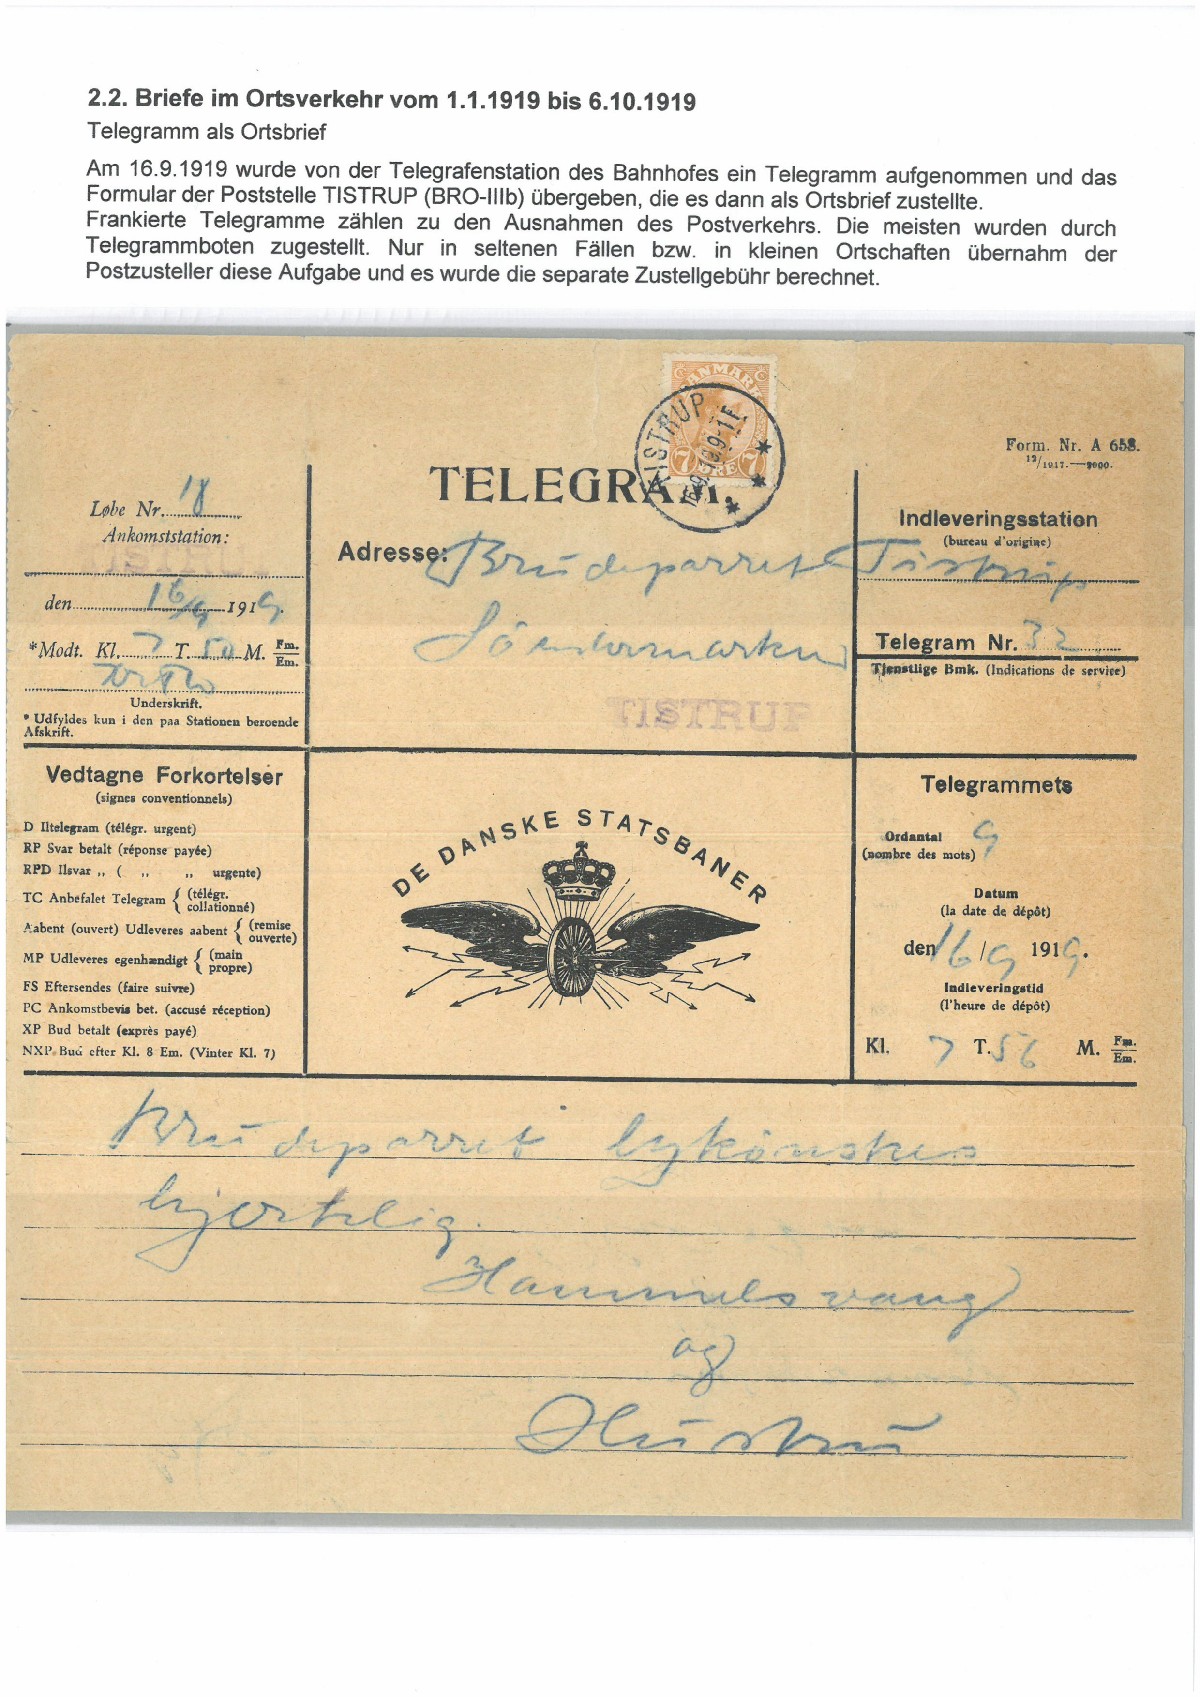 2.2. Briefe im Ortsverkehr vom 1.1.1919 bis 6.10.1919
Telegramm als Ortsbrief
Am 16.9.1919 wurde von der Telegrafenstation des Bahnhofes ein Telegramm aufgenommen und das
Formular der Poststelle TISTRUP (BRO-IIIb) übergeben, die es dann als Ortsbrief zustellte.
Frankierte Telegramme zählen zu den Ausnahmen des Postverkehrs. Die meisten wurden durch
Telegrammboten zugestellt. Nur in seltenen Fällen bzw. in kleinen Ortschaften übernahm der
Postzusteller diese Aufgabe und es wurde die separate Zustellgebühr berechnet.
DANMARK
7 ØRE 7
TISTRUP
16.9.19.9-11F
Form. Nr. A 658.
12/1917.—9000.
TELEGRAM.
Løbe Nr. 18
Ankomststation:
TISTRUP
den 16/9 1919.
*Modt. Kl. 7 T. 50 M. Fm./Em.
Underskrift.
* Udfyldes kun i den paa Stationen beroende
Afskrift.
Adresse: Brudeparret
Söndermarken
TISTRUP
Indleveringsstation
(bureau d'origine)
Tistrup
Telegram Nr. 32
Tjenstlige Bmk. (Indications de service)
Vedtagne Forkortelser
(signes conventionnels)
D Iltelegram (télégr. urgent)
RP Svar betalt (réponse payée)
RPD Ilsvar „ ( „ „ urgente)
TC Anbefalet Telegram { (télégr. collationné)
Aabent (ouvert) Udleveres aabent { (remise ouverte)
MP Udleveres egenhændigt { (main propre)
FS Eftersendes (faire suivre)
PC Ankomstbevis bet. (accusé réception)
XP Bud betalt (exprès payé)
NXP Bud efter Kl. 8 Em. (Vinter Kl. 7)
DE DANSKE STATSBANER
Telegrammets
Ordantal 9
(nombre des mots)
Datum
(la date de dépôt)
den 16/9 1919.
Indleveringstid
(l'heure de dépôt)
Kl. 7 T. 56 M. Fm./Em.
Brudeparret lykönskes
hjertelig.
Hammelsvang
og
Hustru